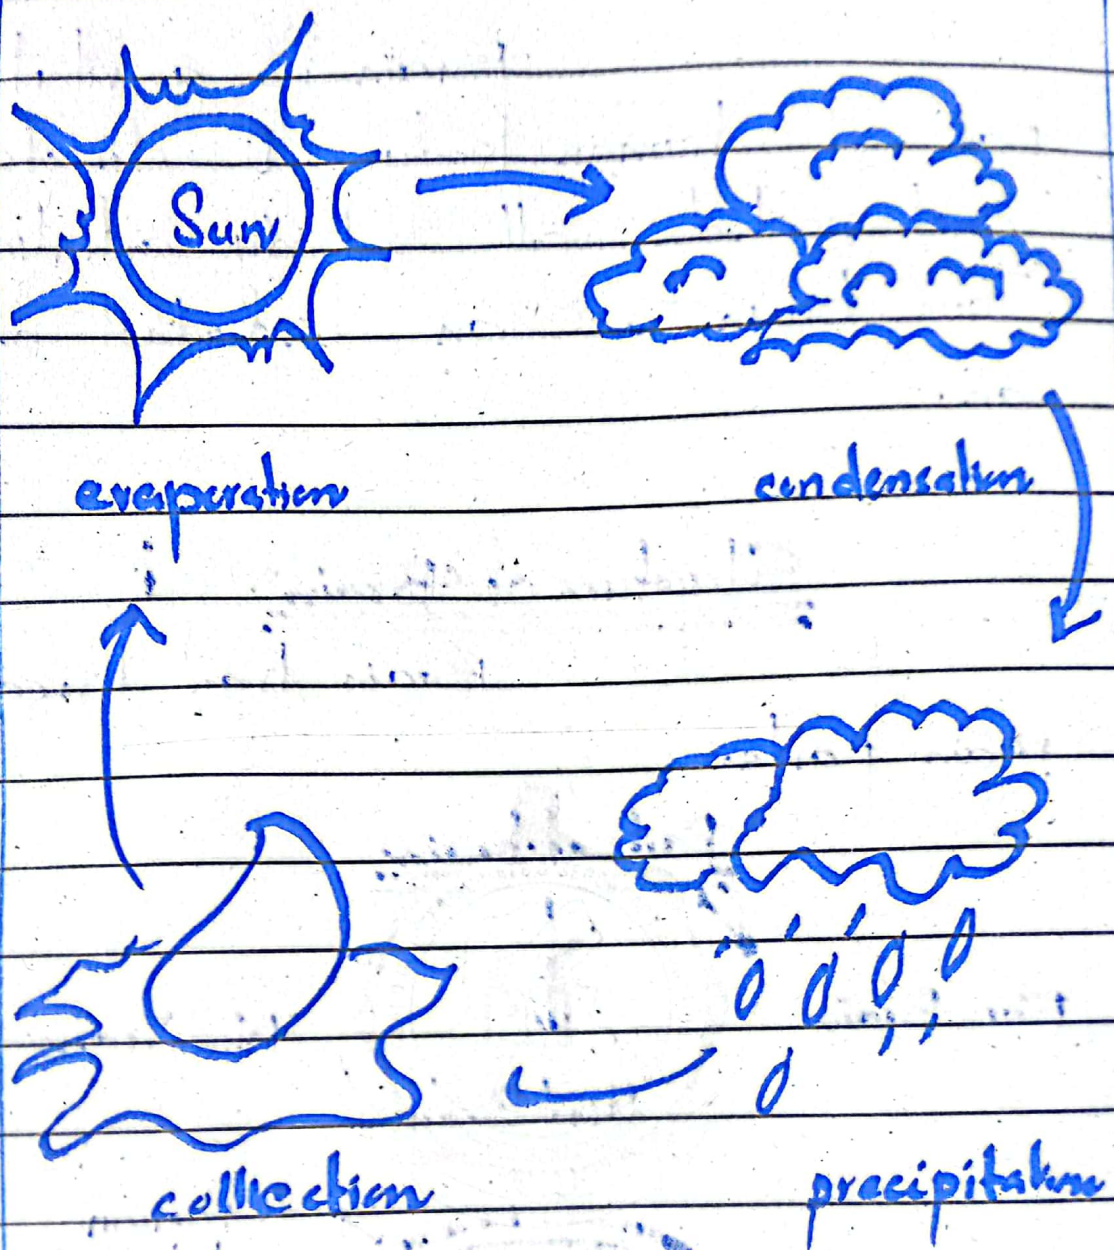 Sun
evaporation condensation
collection precipitation